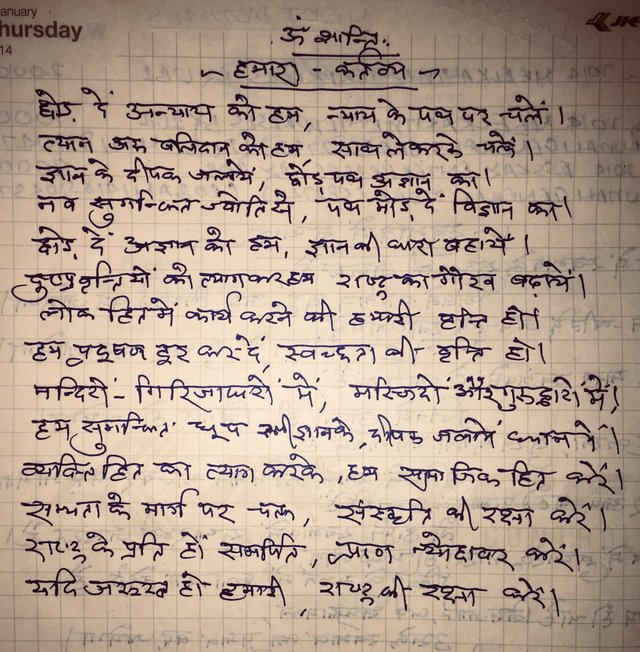 January
Thursday
14
JK
ॐ शान्ति:
~ हमारा - कर्तव्य ~
छोड़ दें अन्याय को हम, न्याय के पथ पर चलें।
त्याग अरु बलिदान को हम साथ लेकरके चलें।
ज्ञान के दीपक जलायें, छोड़ पथ अज्ञान का।
नव सुगन्धित ज्योति से, पथ मोड़ दें विज्ञान का।
छोड़ दें अज्ञान को हम, ज्ञान की धारा बहायें।
दुष्प्रवृत्तियों को त्यागकर हम राष्ट्र का गौरव बढ़ायें।
लोक हित में कार्य करने की हमारी वृत्ति हो।
हम प्रदूषण दूर कर दें, स्वच्छता की वृत्ति हो।
मन्दिरों - गिरिजाघरों में, मस्जिदों और गुरुद्वारों में,
हम सुगन्धित धूप ज्ञान के, दीपक जलायें ध्यान में।
व्यक्ति हित का त्याग करके, हम सामाजिक हित करें।
सभ्यता के मार्ग पर चल, संस्कृति की रक्षा करें।
राष्ट्र के प्रति हों समर्पित, प्राण न्योछावर करें।
यदि जरूरत हो हमारी, राष्ट्र की रक्षा करें।